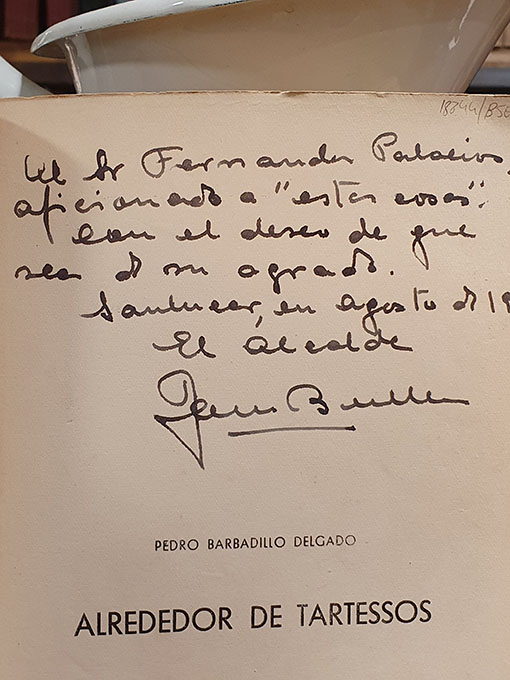 Al Sr Fernández Palacios,
aficionado a "estas cosas".
Con el deseo de que
sea de su agrado.
Sanlucar, en agosto de 19
El Alcalde
PEDRO BARBADILLO DELGADO
ALREDEDOR DE TARTESSOS